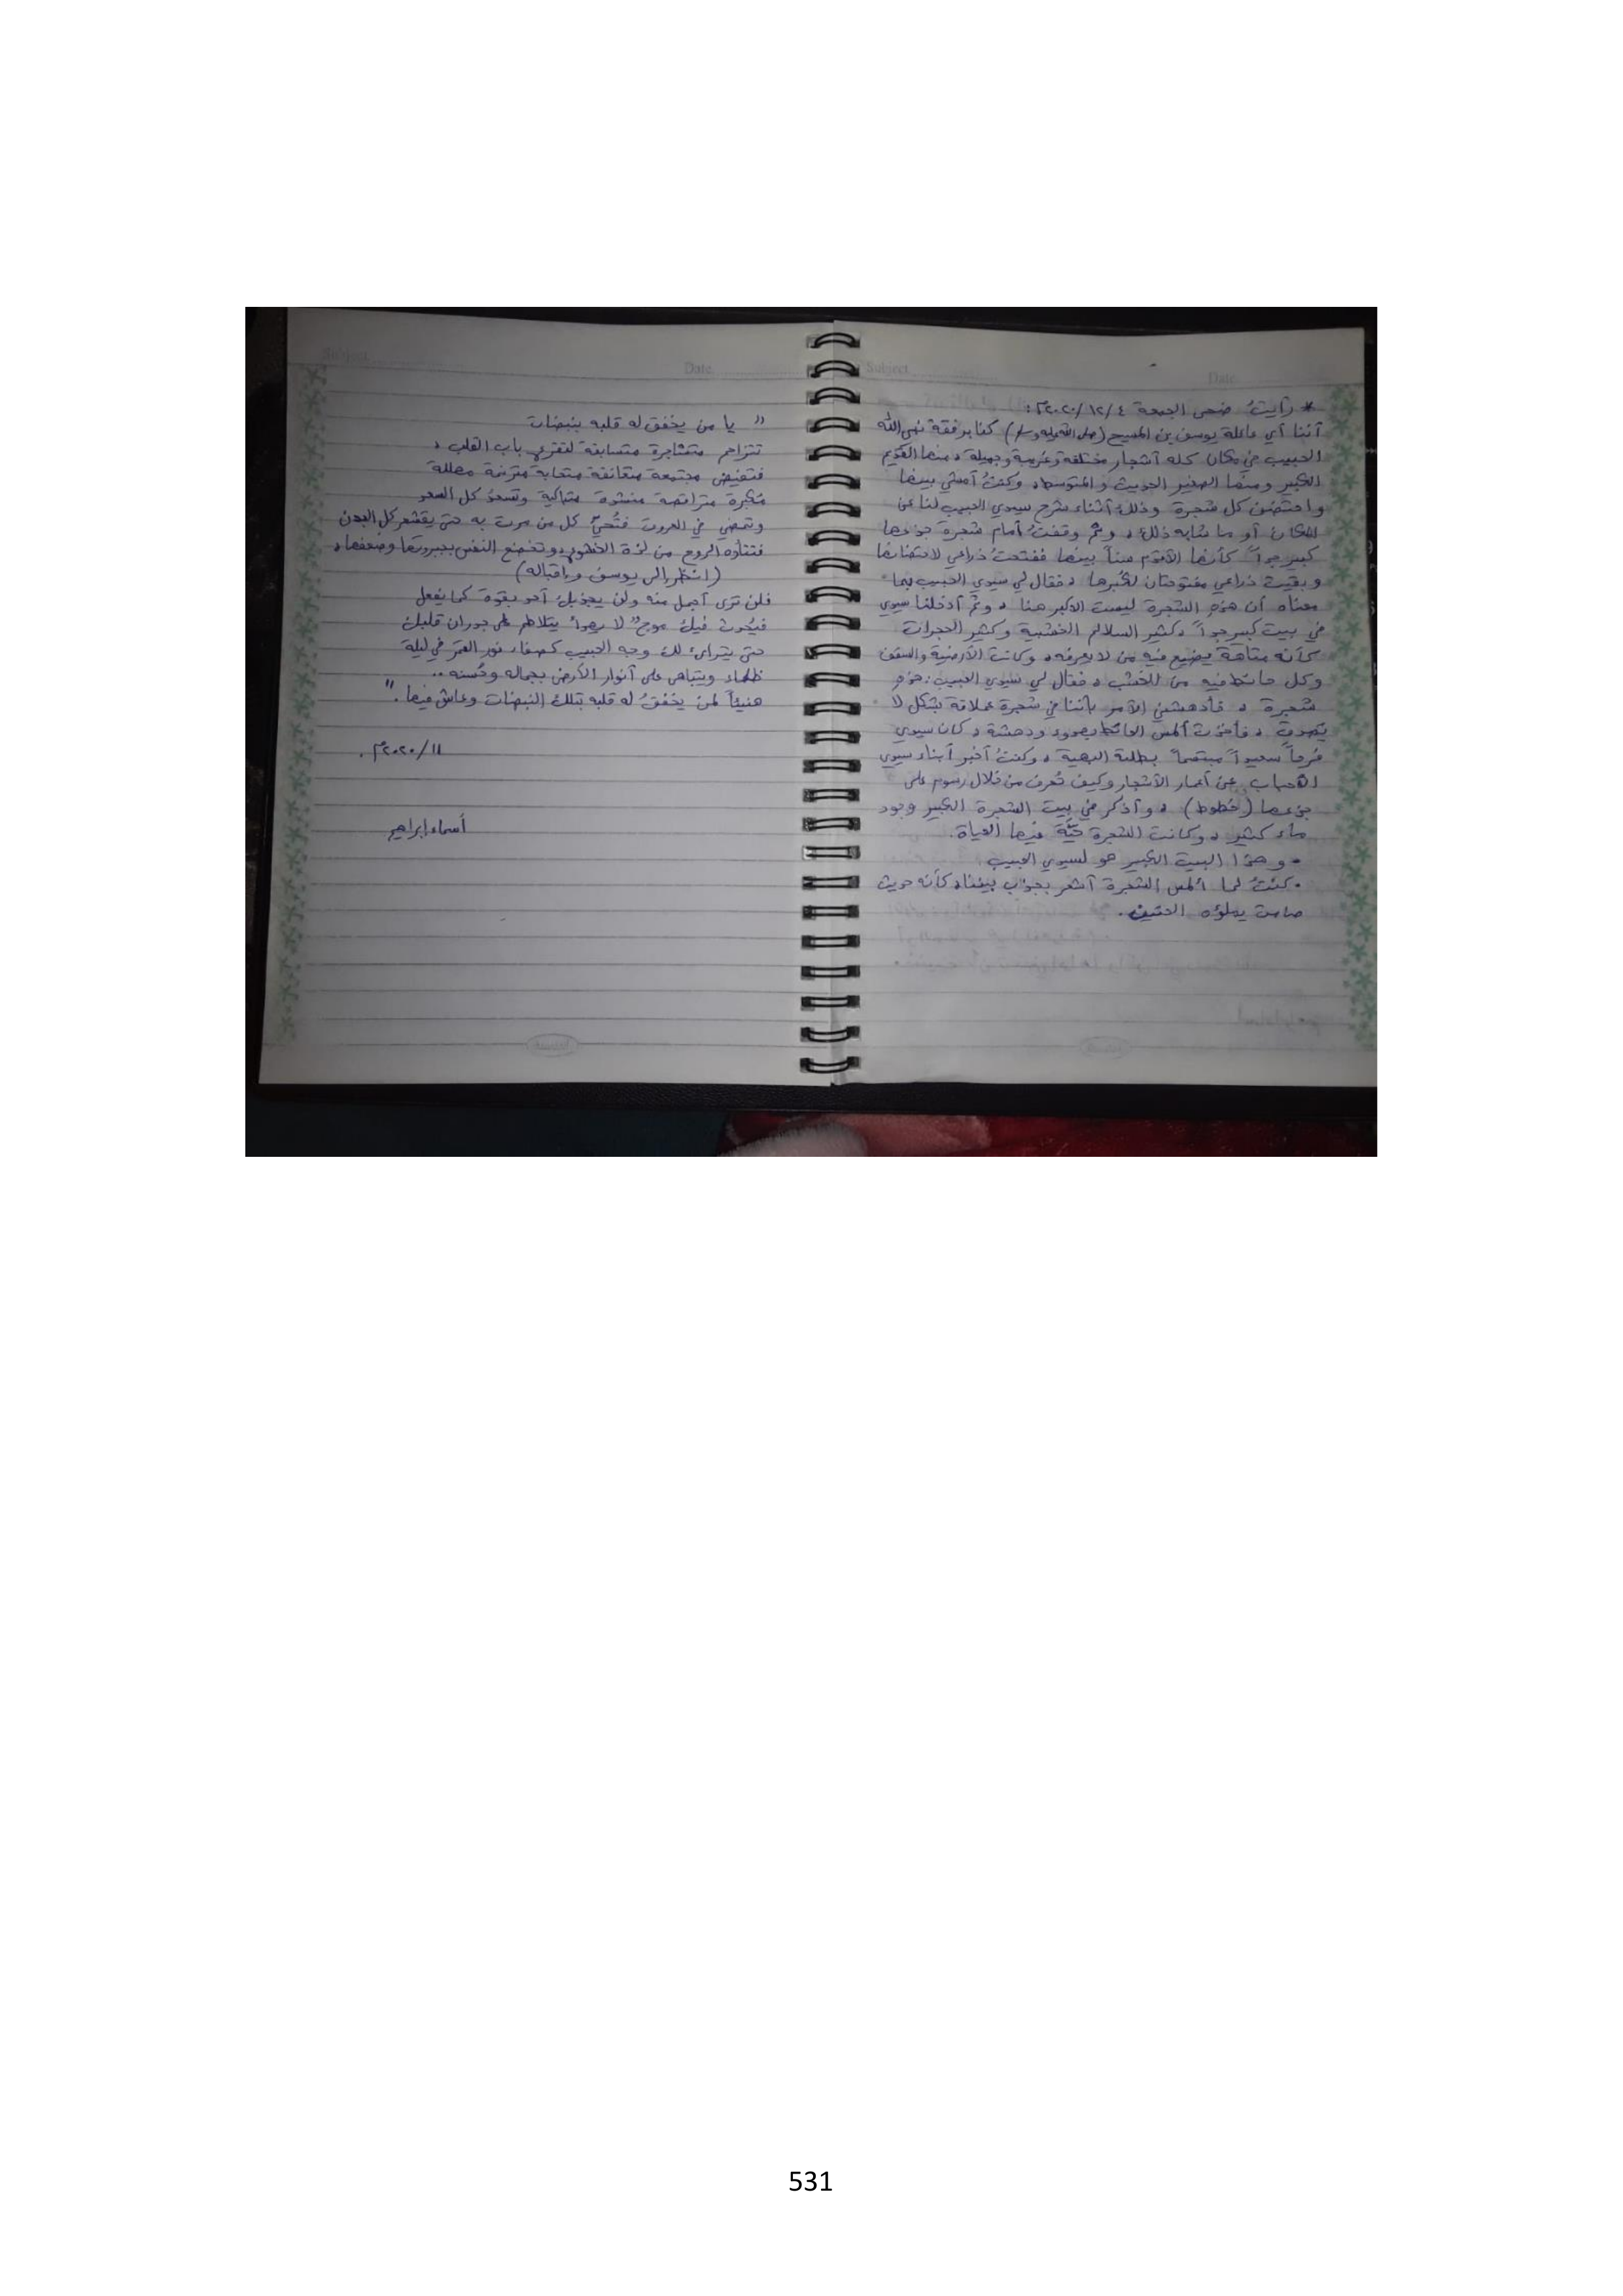 * رأيتُ ضحى الجمعة ٤/١٢/٢٠٢٠م:
أننا أي عائلة يوسف بن المسيح (صلى الله عليه وسلم) كنا برفقة نبي الله
الحبيب في مكان كله أشجار مختلفة وغريبة وجميلة، منها القديم
الكبير ومنها الصغير الحديث والمتوسط، وكنتُ أمشي بينها
واحتضن كل شجرة وذلك أثناء شرح سيدي الحبيب لنا عن
المكان أو ما شابه ذلك، وثم وقفتُ أمام شجرة جذعها
كبير جداً كأنها الأقدم سناً بينها ففتحتُ ذراعي لاحتضانها
وبقيت ذراعي مفتوحتان لكبرها، فقال لي سيدي الحبيب بما
معناه أن هذه الشجرة ليست الأكبر هنا، وثم أدخلنا سيدي
في بيت كبير جداً، كثير السلالم الخشبية وكثير الحجرات
كأنه متاهة يضيع فيه من لا يعرفه، وكانت الأرضية والسقف
وكل حائط فيه من الخشب، فقال لي سيدي الحبيب: هذه
شجرة، فأدهشني الأمر بأننا في شجرة عملاقة بشكل لا
يُصدق، فأخذت ألمس الحائط ودهشة، كان سيدي
فرحاً سعيداً مبتسماً بطلته البهية، وكنتُ أخبر أبناء سيدي
الأحباب عن أعمار الأشجار وكيف تُعرف من خلال رسوم على
جذعها (خطوط)، وأذكر في بيت الشجرة الكبير وجود
ماء كثير، وكانت الشجرة حيَّة فيها الحياة.
• وهذا البيت الكبير هو لسيدي الحبيب.
• كنتُ لما ألمس الشجرة أشعر بجذب بيننا، كأنه حديث
صامت يملؤه الحنين.
" يا من يخفق له قلبه بنبضات
تتزاحم متشاجرة متسابقة لتقرع باب القلب،
فتفيض مجتمعة متعانقة متحابة مترنمة مهللة
مكبرة متراقصة منشدة متباكية وتسعد كل السعد
وتمضي في العروق فتُحيّ كل من مرت به حتى يقشعر كل البدن
فتتأوه الروح من لذة الخشوع، وتخضع النفس بجبروتها وضعفها،
(انظر إلى يوسف وإقباله)
فلن ترى أجمل منه ولن يجذبك أحد بقوة كما يفعل
فيُحدث فيك موج" لا يهدأ يتلاطم على جدران قلبك
حتى يتراءى لك وجه الحبيب كصفاء نور القمر في ليلة
ظلماء ويتباهى على أنوار الأرض بجماله وحُسنه..
هنيئاً لمن يخفقُ له قلبه بتلك النبضات وعاش فيها."
١١/٢٠٢٠م.
أسماء إبراهيم
531